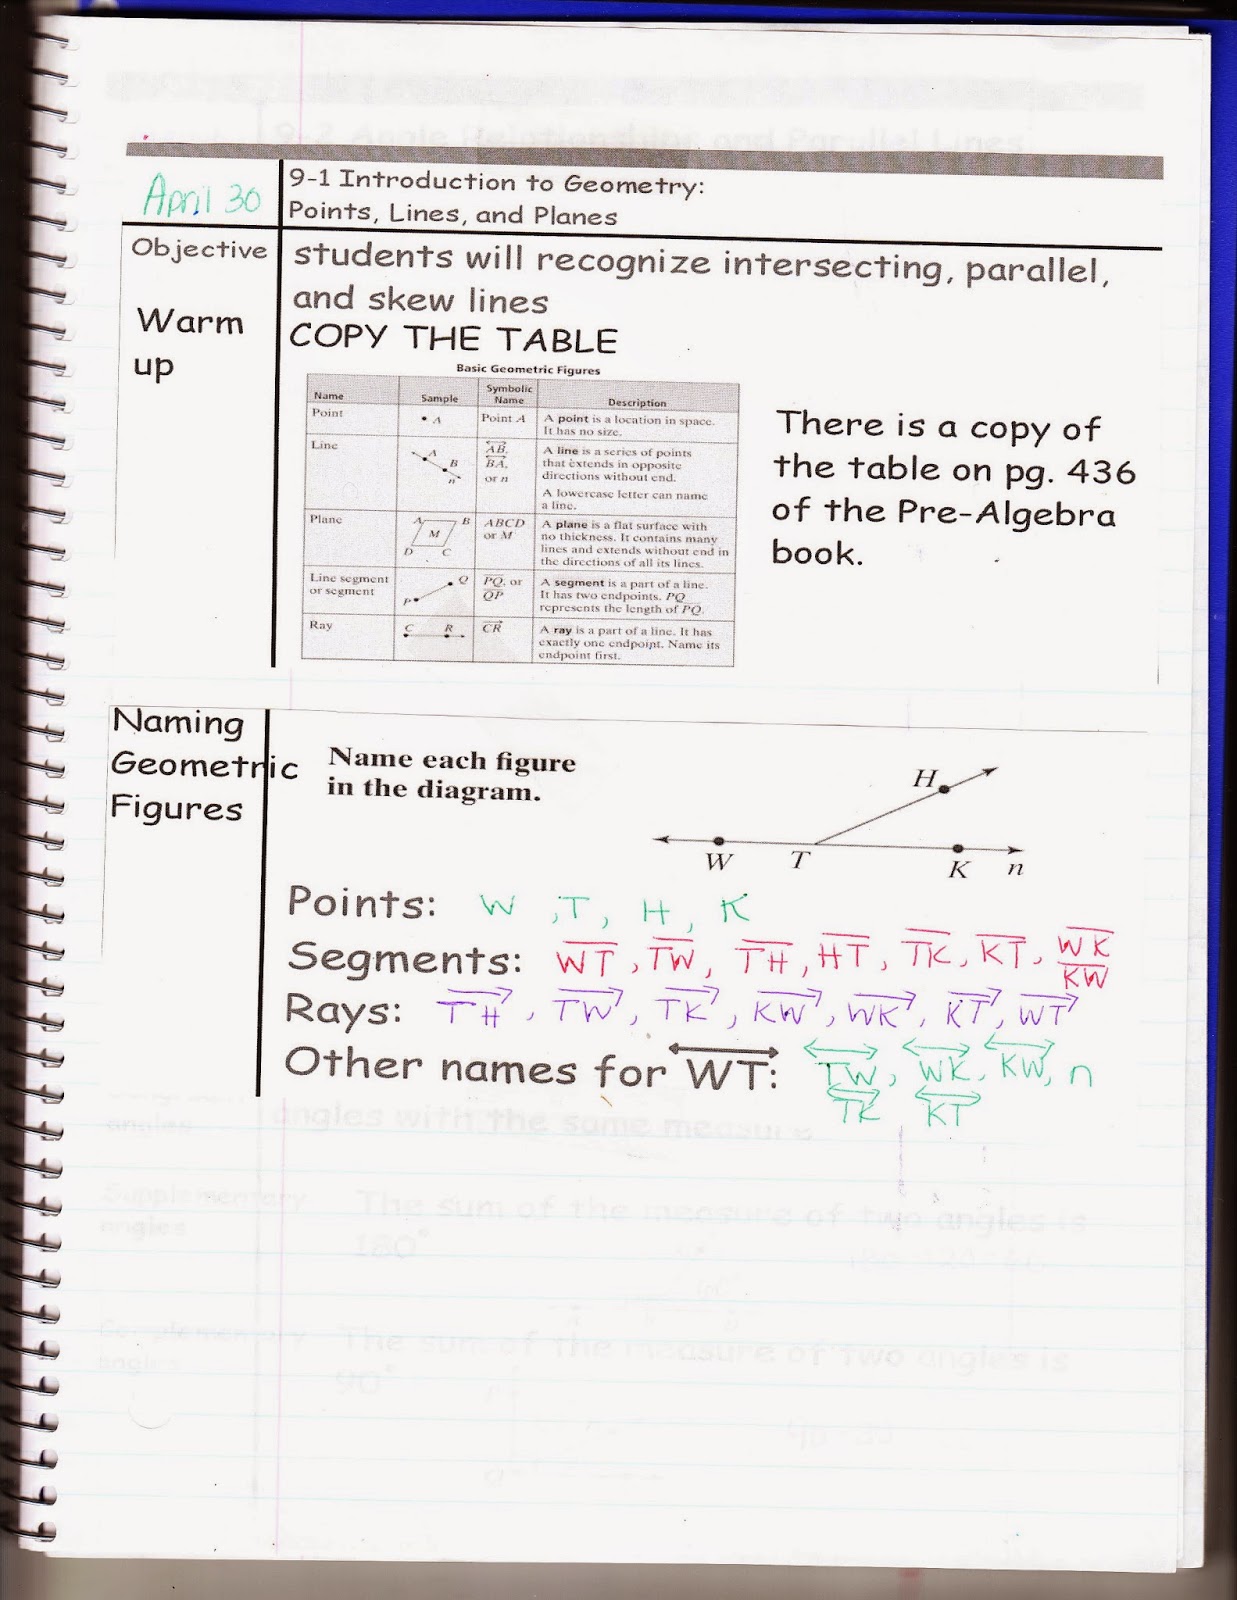 April 30
9-1 Introduction to Geometry:
Points, Lines, and Planes
Objective
students will recognize intersecting, parallel,
and skew lines
Warm
up
COPY THE TABLE
Basic Geometric Figures
Name Sample Symbolic Name Description
Point A Point A A point is a location in space.
It has no size.
Line A B n AB, BA, or n A line is a series of points
that extends in opposite
directions without end.
A lowercase letter can name
a line.
Plane A B M D C ABCD or M A plane is a flat surface with
no thickness. It contains many
lines and extends without end in
the directions of all its lines.
Line segment or segment P Q PQ, or QP A segment is a part of a line.
It has two endpoints. PQ
represents the length of PQ.
Ray C R CR A ray is a part of a line. It has
exactly one endpoint. Name its
endpoint first.
There is a copy of
the table on pg. 436
of the Pre-Algebra
book.
Naming
Geometric
Figures
Name each figure
in the diagram.
H
W T K n
Points: W, T, H, K
Segments: WT, TW, TH, HT, TK, KT, WK
KW
Rays: TH, TW, TK, KW, WK, KT, WT
Other names for WT: TW, WK, KW, n
TK KT
9-2 Angle Relationships and Parallel Lines
angles with the same measure
angles
Supplementary
angles
The sum of the measure of two angles is
180°
Complementary
angles
The sum of the measure of two angles is
90°